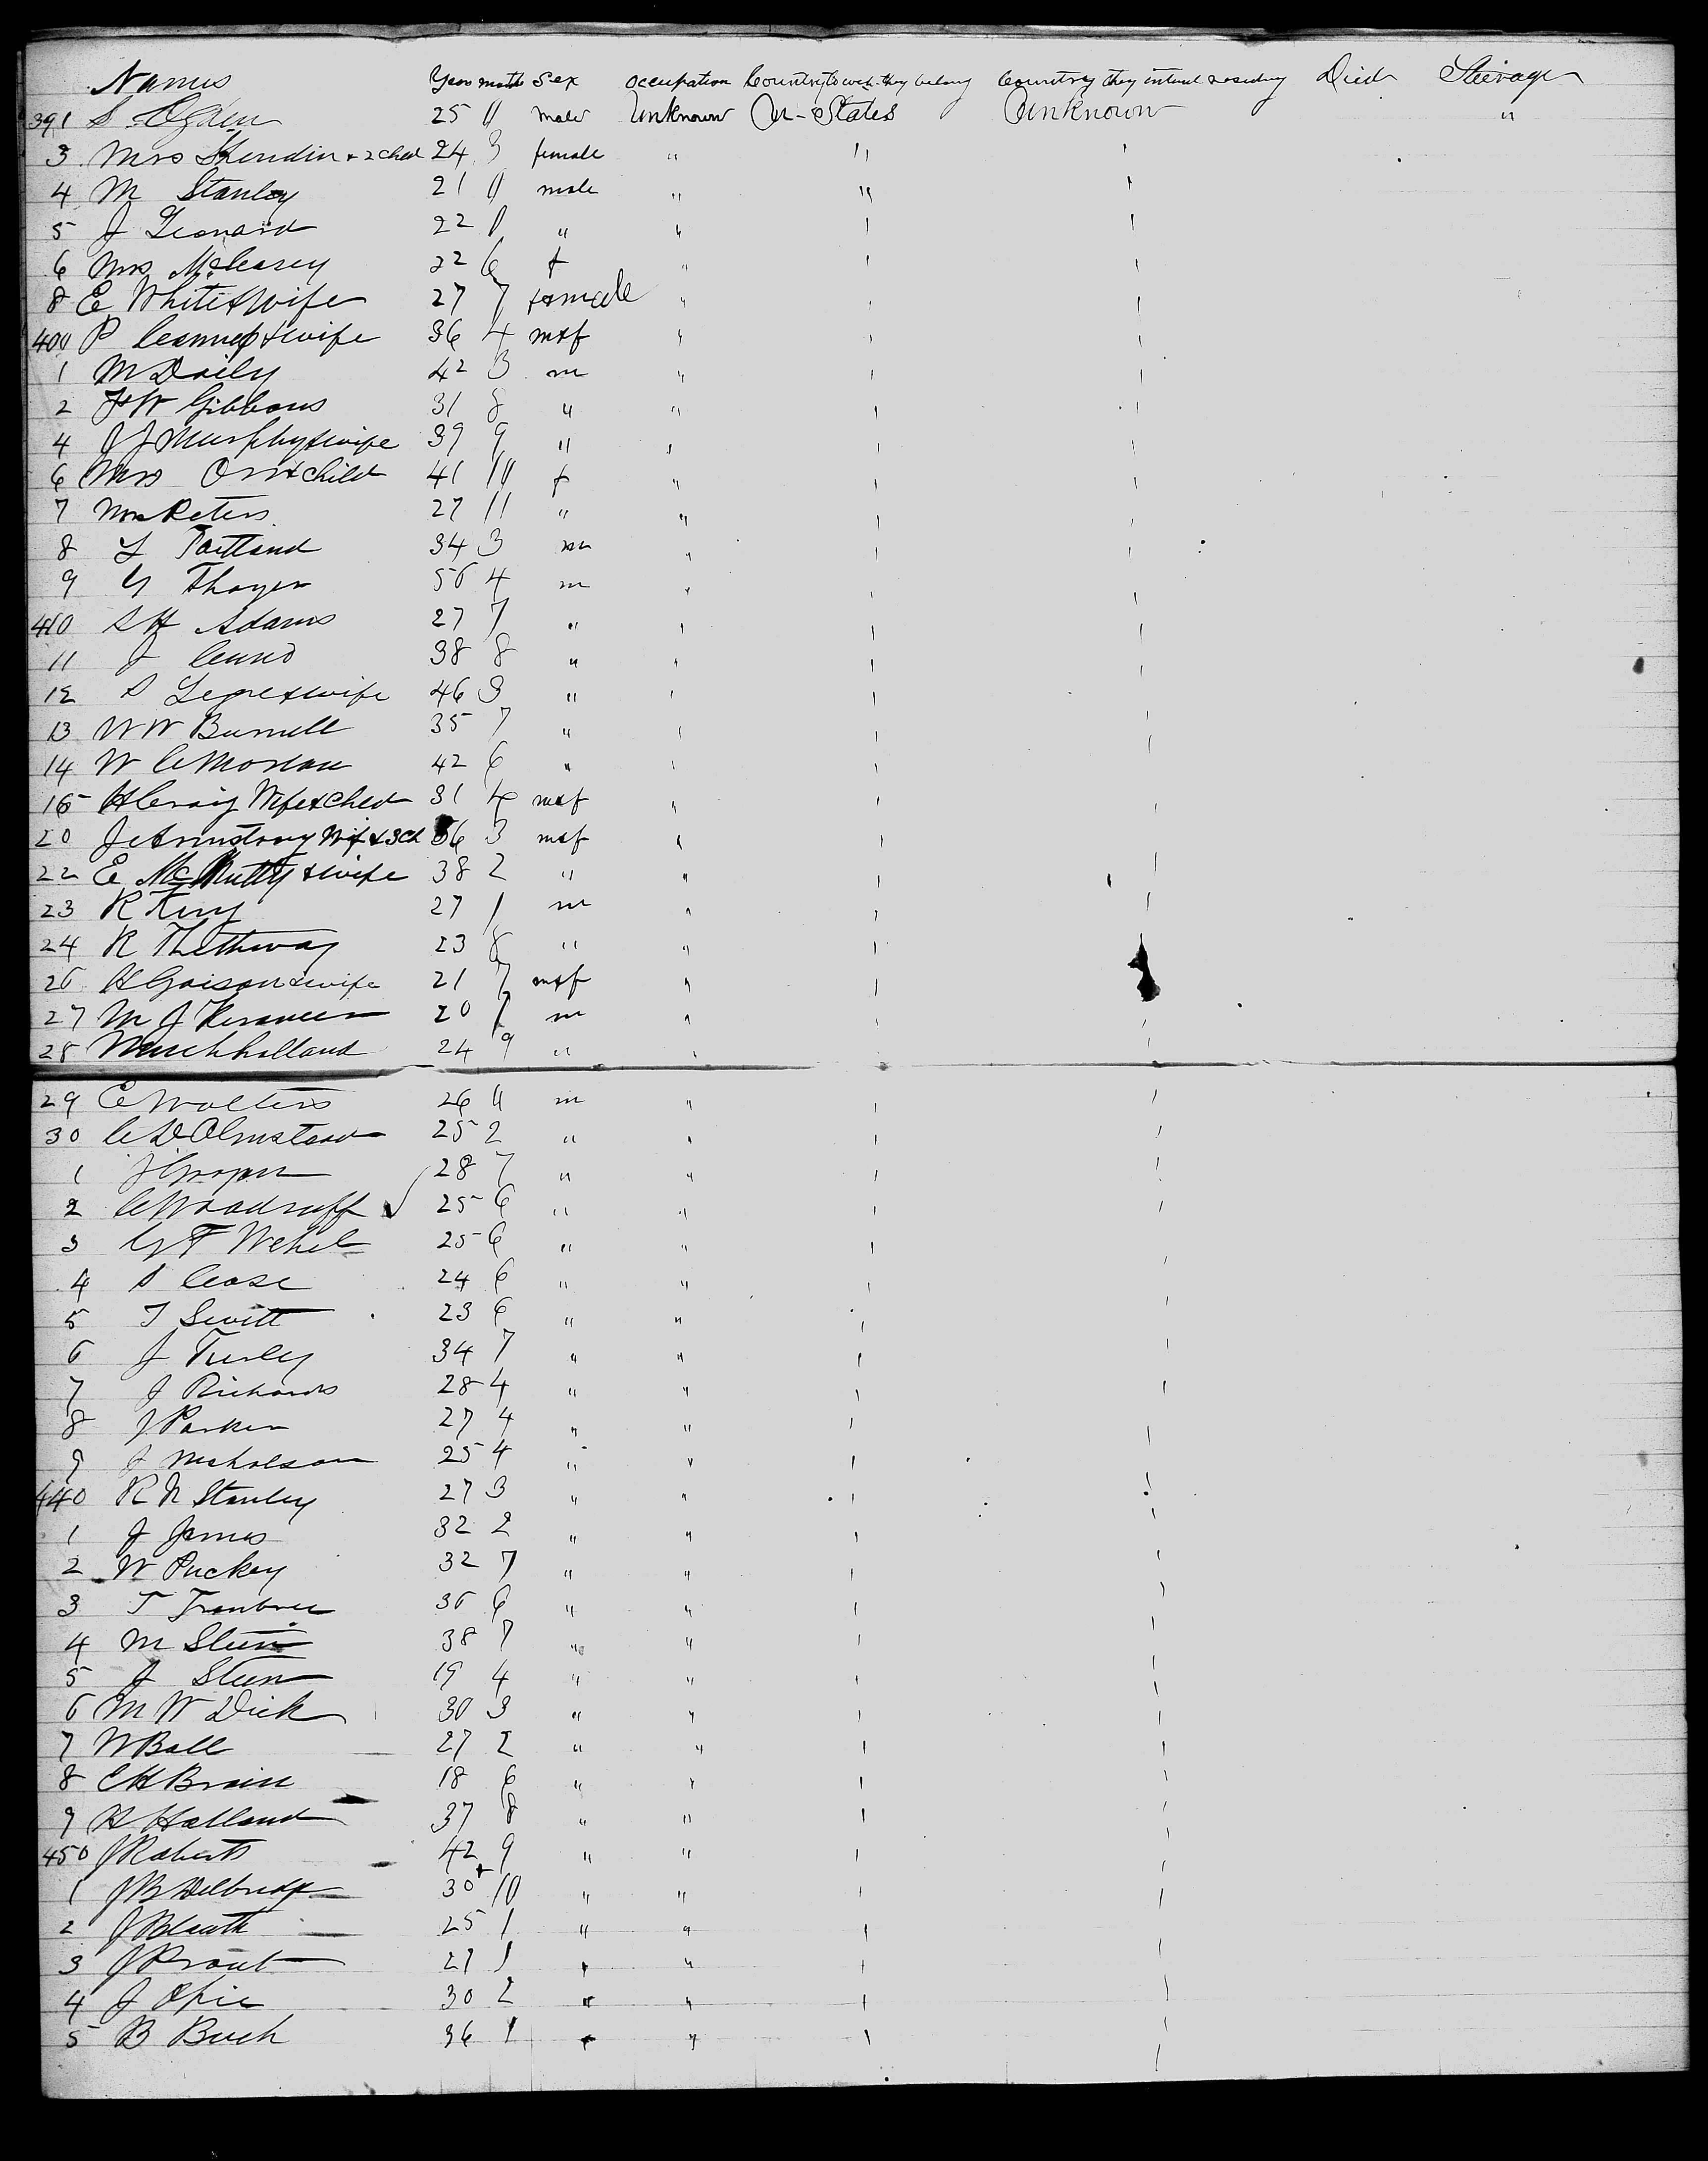 Names Year month Sex Occupation Country to wch they belong Country they intend residing Died Steerage
391 S Ogden 25 11 male Unknown Un-States Unknown "
3 Mrs & 2 Child 24 3 female " " '
4 M Stanley 21 11 male " " '
5 J Leonard 22 1 " " ' '
6 Mrs McCasey 22 6 f " ' '
8 E White & Wife 27 7 female " ' '
400 P & wife 36 4 m&f ' ' '
1 M Daily 42 3 m " ' '
2 J W Gibbons 31 8 " " ' '
4 J J Murphy & wife 39 9 " ' ' '
6 Mrs Orr & Child 41 10 f " ' '
7 Mrs Peters 27 11 " " ' '
8 Portland 34 3 m " ' '
9 G Thayer 56 4 m ' ' '
410 S H Adams 27 7 " ' ' '
11 J 38 8 " ' ' '
12 S & wife 46 3 " ' ' '
13 W W Burnell 35 7 " ' ' '
14 W C Morlan 42 6 " ' ' '
16 H Craig Wife & Child 31 4 m&f ' ' '
20 J Armstrong Wif & 3 Ch 36 3 m&f ' ' '
22 E McNutty & wife 38 2 " " ' '
23 R King 27 1 m " ' '
24 R Thethway 23 8 " " ' '
26 H Goison & wife 21 7 m&f " ' '
27 M J 20 7 m " ' '
28 Muchholland 24 9 " ' ' '
29 E Wolters 26 11 m " ' '
30 C D Olmstead 25 2 " " ' '
1 J 28 7 " " ' '
2 C Woodruff ✓ 25 6 " " ' '
3 G F Wehel 25 6 " " '
4 S Case 24 6 " " ' '
5 T Sevitt 23 6 " " ' '
6 J Turley 34 7 " " ' '
7 J Richards 28 4 " " ' '
8 J Parker 27 4 " " ' '
9 J Nicholson 25 4 " " ' '
440 R N Stanley 27 3 " " ' '
1 J James 32 2 " " '
2 W Puckey 32 7 " " ' '
3 T 36 6 " " ' '
4 M Stein 38 7 " " ' '
5 J Steen 19 4 " " ' '
6 M W Dick 30 3 " " ' '
7 W Ball 27 2 " " ' '
8 E H Brain 18 6 " " ' '
9 H Holland 37 8 " " ' '
450 J Roberts 42 9 " " ' '
1 J B Delbridge 30 10 " " '
2 J 25 1 " " ' '
3 J Prout 27 1 " " ' '
4 J Opie 30 2 " " ' '
5 B Buch 36 1 " " ' '